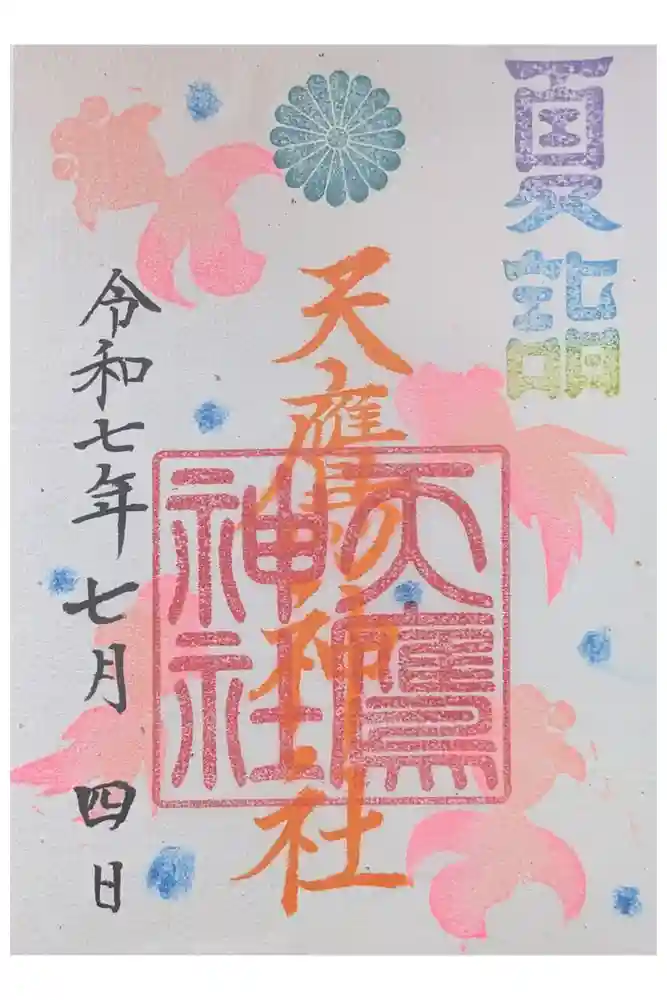 夏詣
天鷹神社
天鷹神社
令和七年七月四日